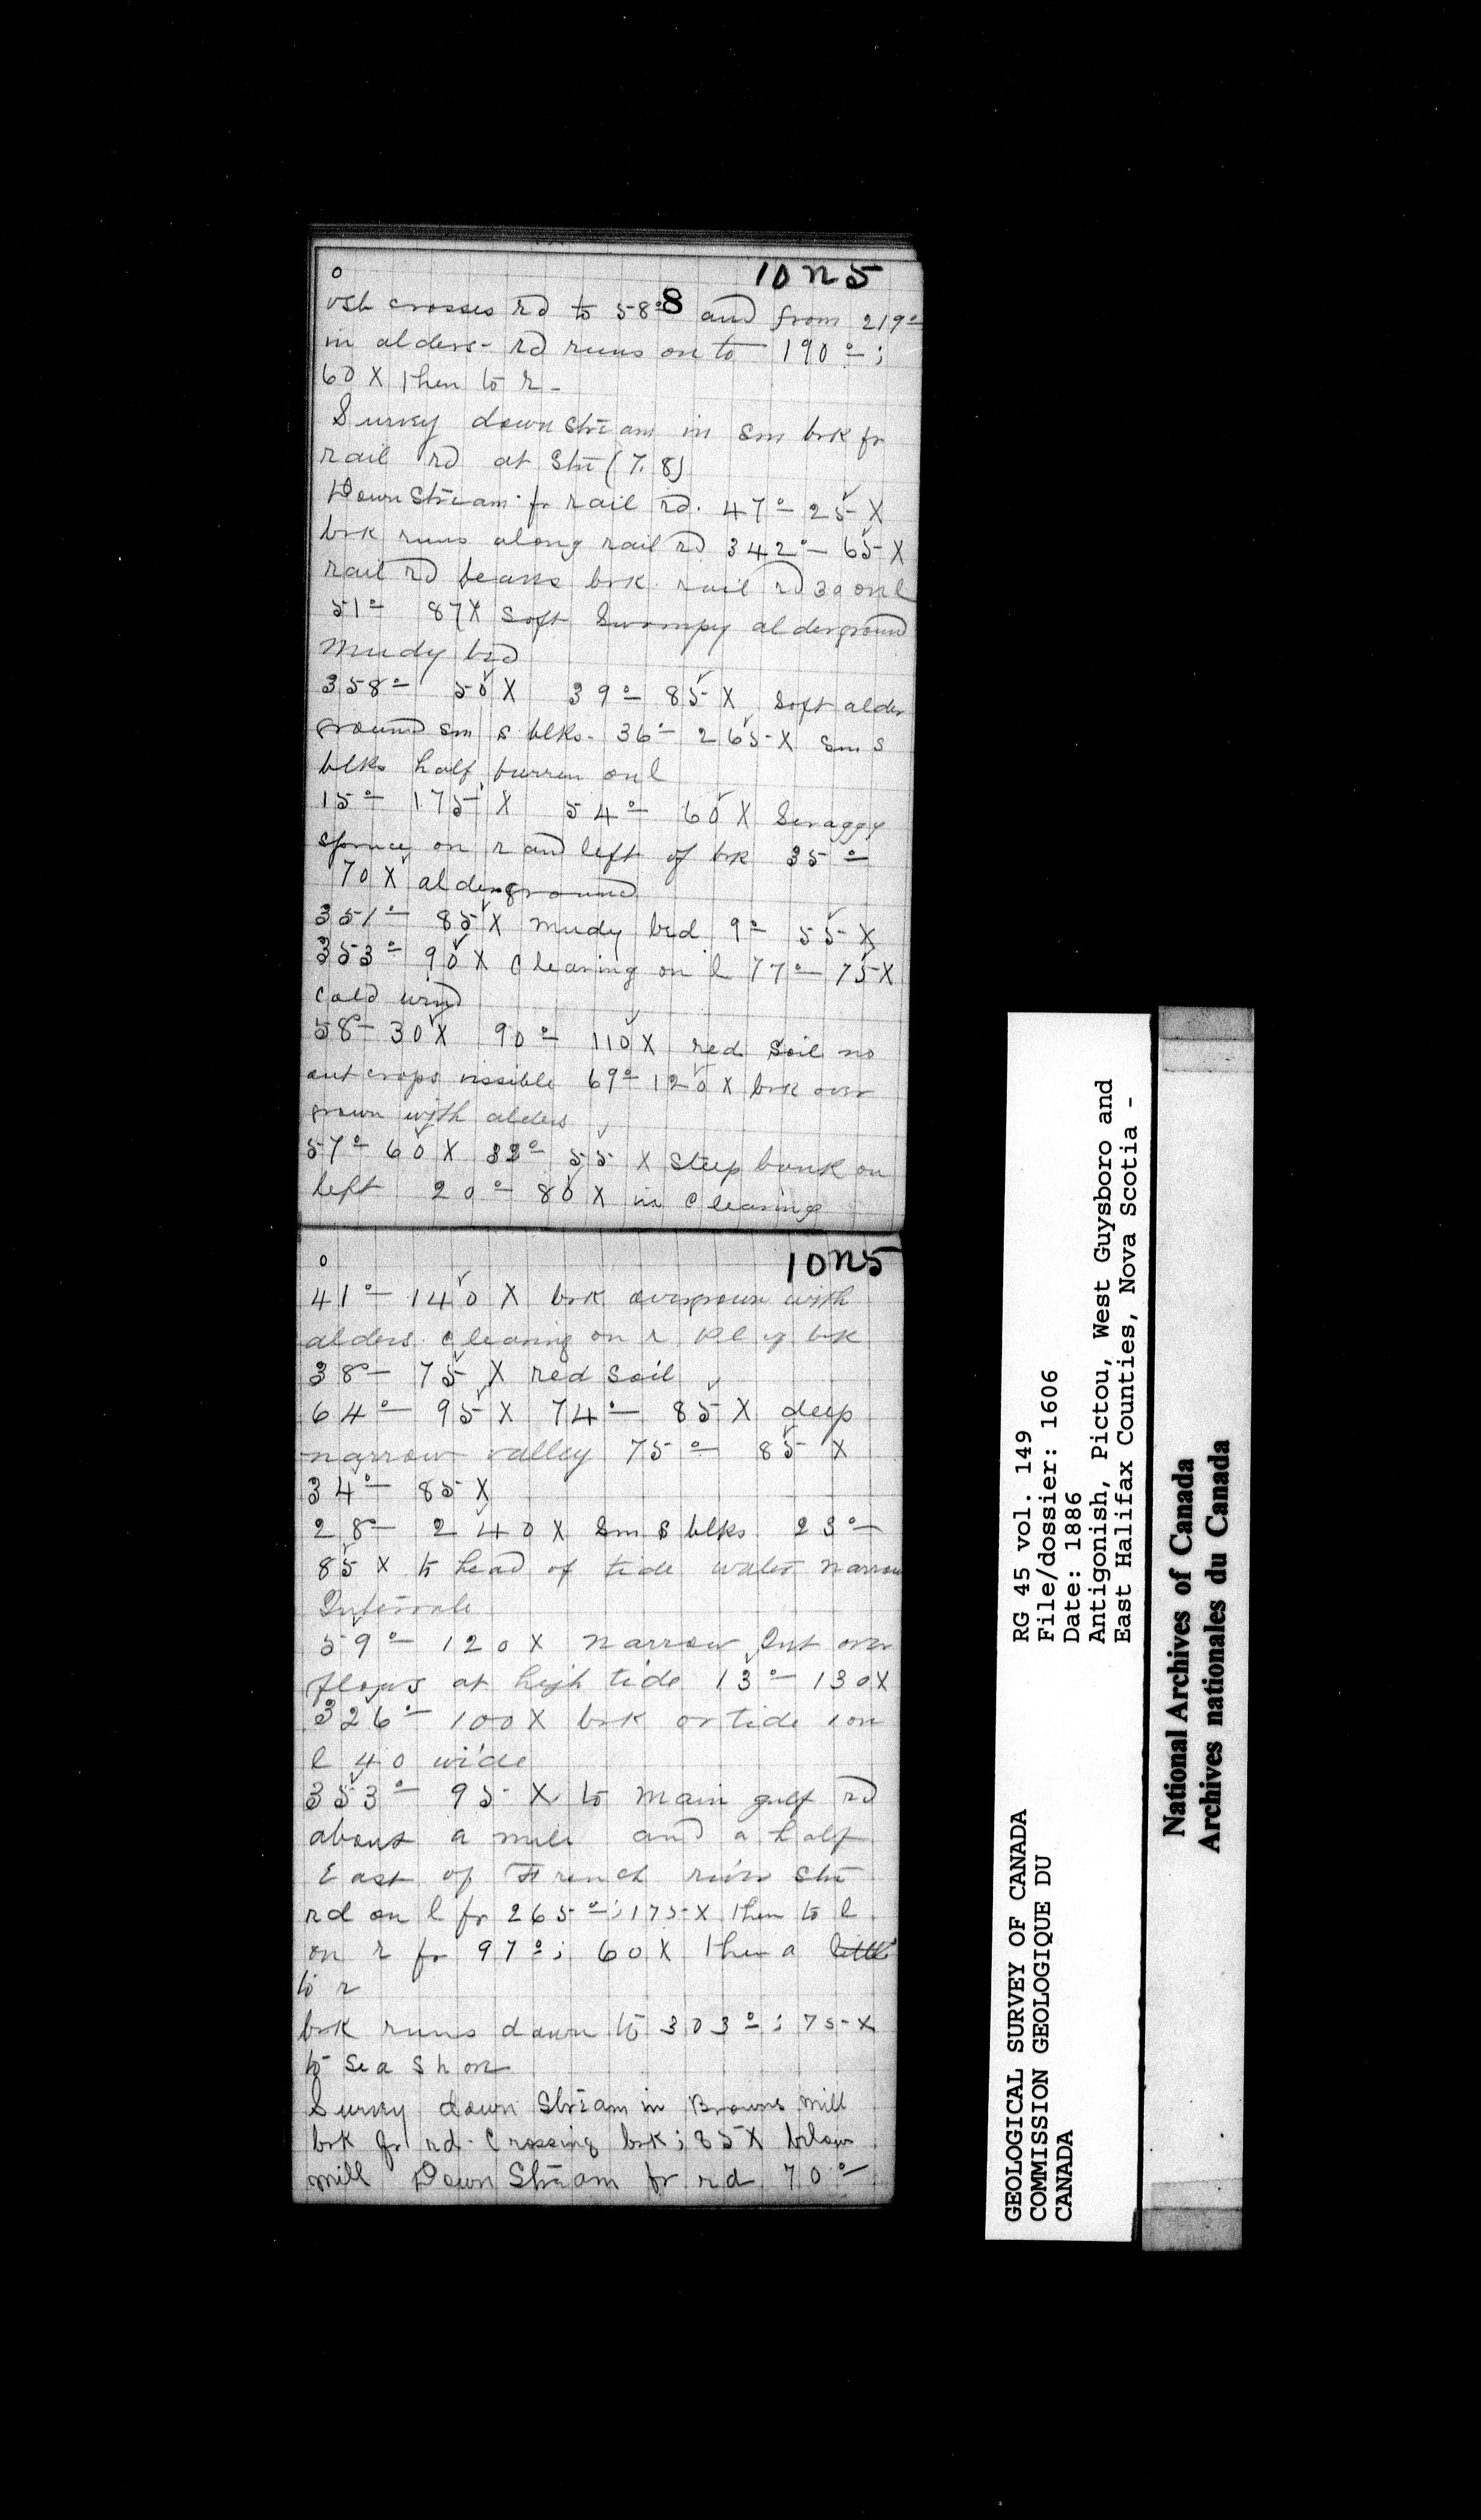 10 n 5
8
vsb crosses rd to 58° and from 219°
in alders - rd runs on to 190°;
60 X then to r -
Survey down stream in sm brk fr
rail rd at Stn (7.8)
Down Stream fr rail rd. 47° 25 X
brk runs along rail rd 342° 65 X
rail rd brk rail rd 30 on l
51° 87 X soft Swampy alderground
mudy bed
358° 50 X 39° 85 X soft alder
ground sm s blks. 36° 265 X sm s
blks half burren on l
15° 175 X 54° 60 X Scraggy
spruce on r and left of brk 35°
70 X alderground
351° 85 X mudy bed 9° 55 X
353° 90 X clearing on l 77° 75 X
cold wind
58° 30 X 90° 110 X red soil no
out crops vissible 69° 120 X brk over
grown with alders
57° 60 X 32° 55 X steep bank on
left 20° 80 X in clearing
10 n 5
41° 140 X brk overgrown with
alders clearing on r & l of brk
38° 75 X red soil
64° 95 X 74° 85 X deep
narrow valley 75° 85 X
34° 85 X
28° 240 X sm s blks 23°
85 X to head of tide water narrow
Intervale
59° 120 X narrow Int over
flows at high tide 13° 130 X
326° 100 X brk or tide 1 on
l 40 wide
353° 95 X to main gulf rd
about a mile and a half
East of French river Stn
rd on l fr 265°; 175 X then to l
on r fr 97°; 60 X then a little
to r
brk runs down to 303°; 75 X
to sea shore
Survey down Stream in Browns mill
brk fr rd crossing brk; 85 X below
mill Down Stream fr rd 70°
RG 45 vol. 149
File/dossier: 1606
Date: 1886
Antigonish, Pictou, West Guysboro and
East Halifax Counties, Nova Scotia -
GEOLOGICAL SURVEY OF CANADA
COMMISSION GEOLOGIQUE DU
CANADA
National Archives of Canada
Archives nationales du Canada